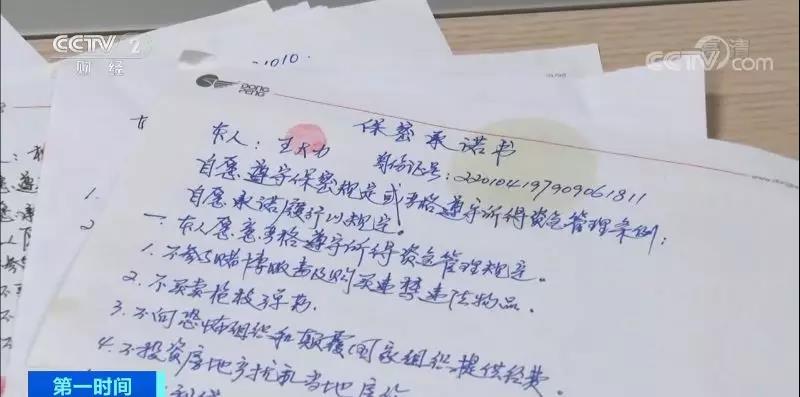 CCTV 2
财经
高清
CCTV.com
-1010.
保密承诺书
本人:王大力 身份证号:220104197909061811
自愿遵守保密规定或严格遵守所得资金管理条例;
自愿承诺履行以规定。
一、本人愿意严格遵守所得资金管理规定。
1. 不参与赌博贩毒及购买违禁违法物品。
2. 不买卖枪枝弹药.
3. 不向恐怖组织和颠覆国家组织提供经费。
4. 不投资房地产扰乱当地房价
第一时间